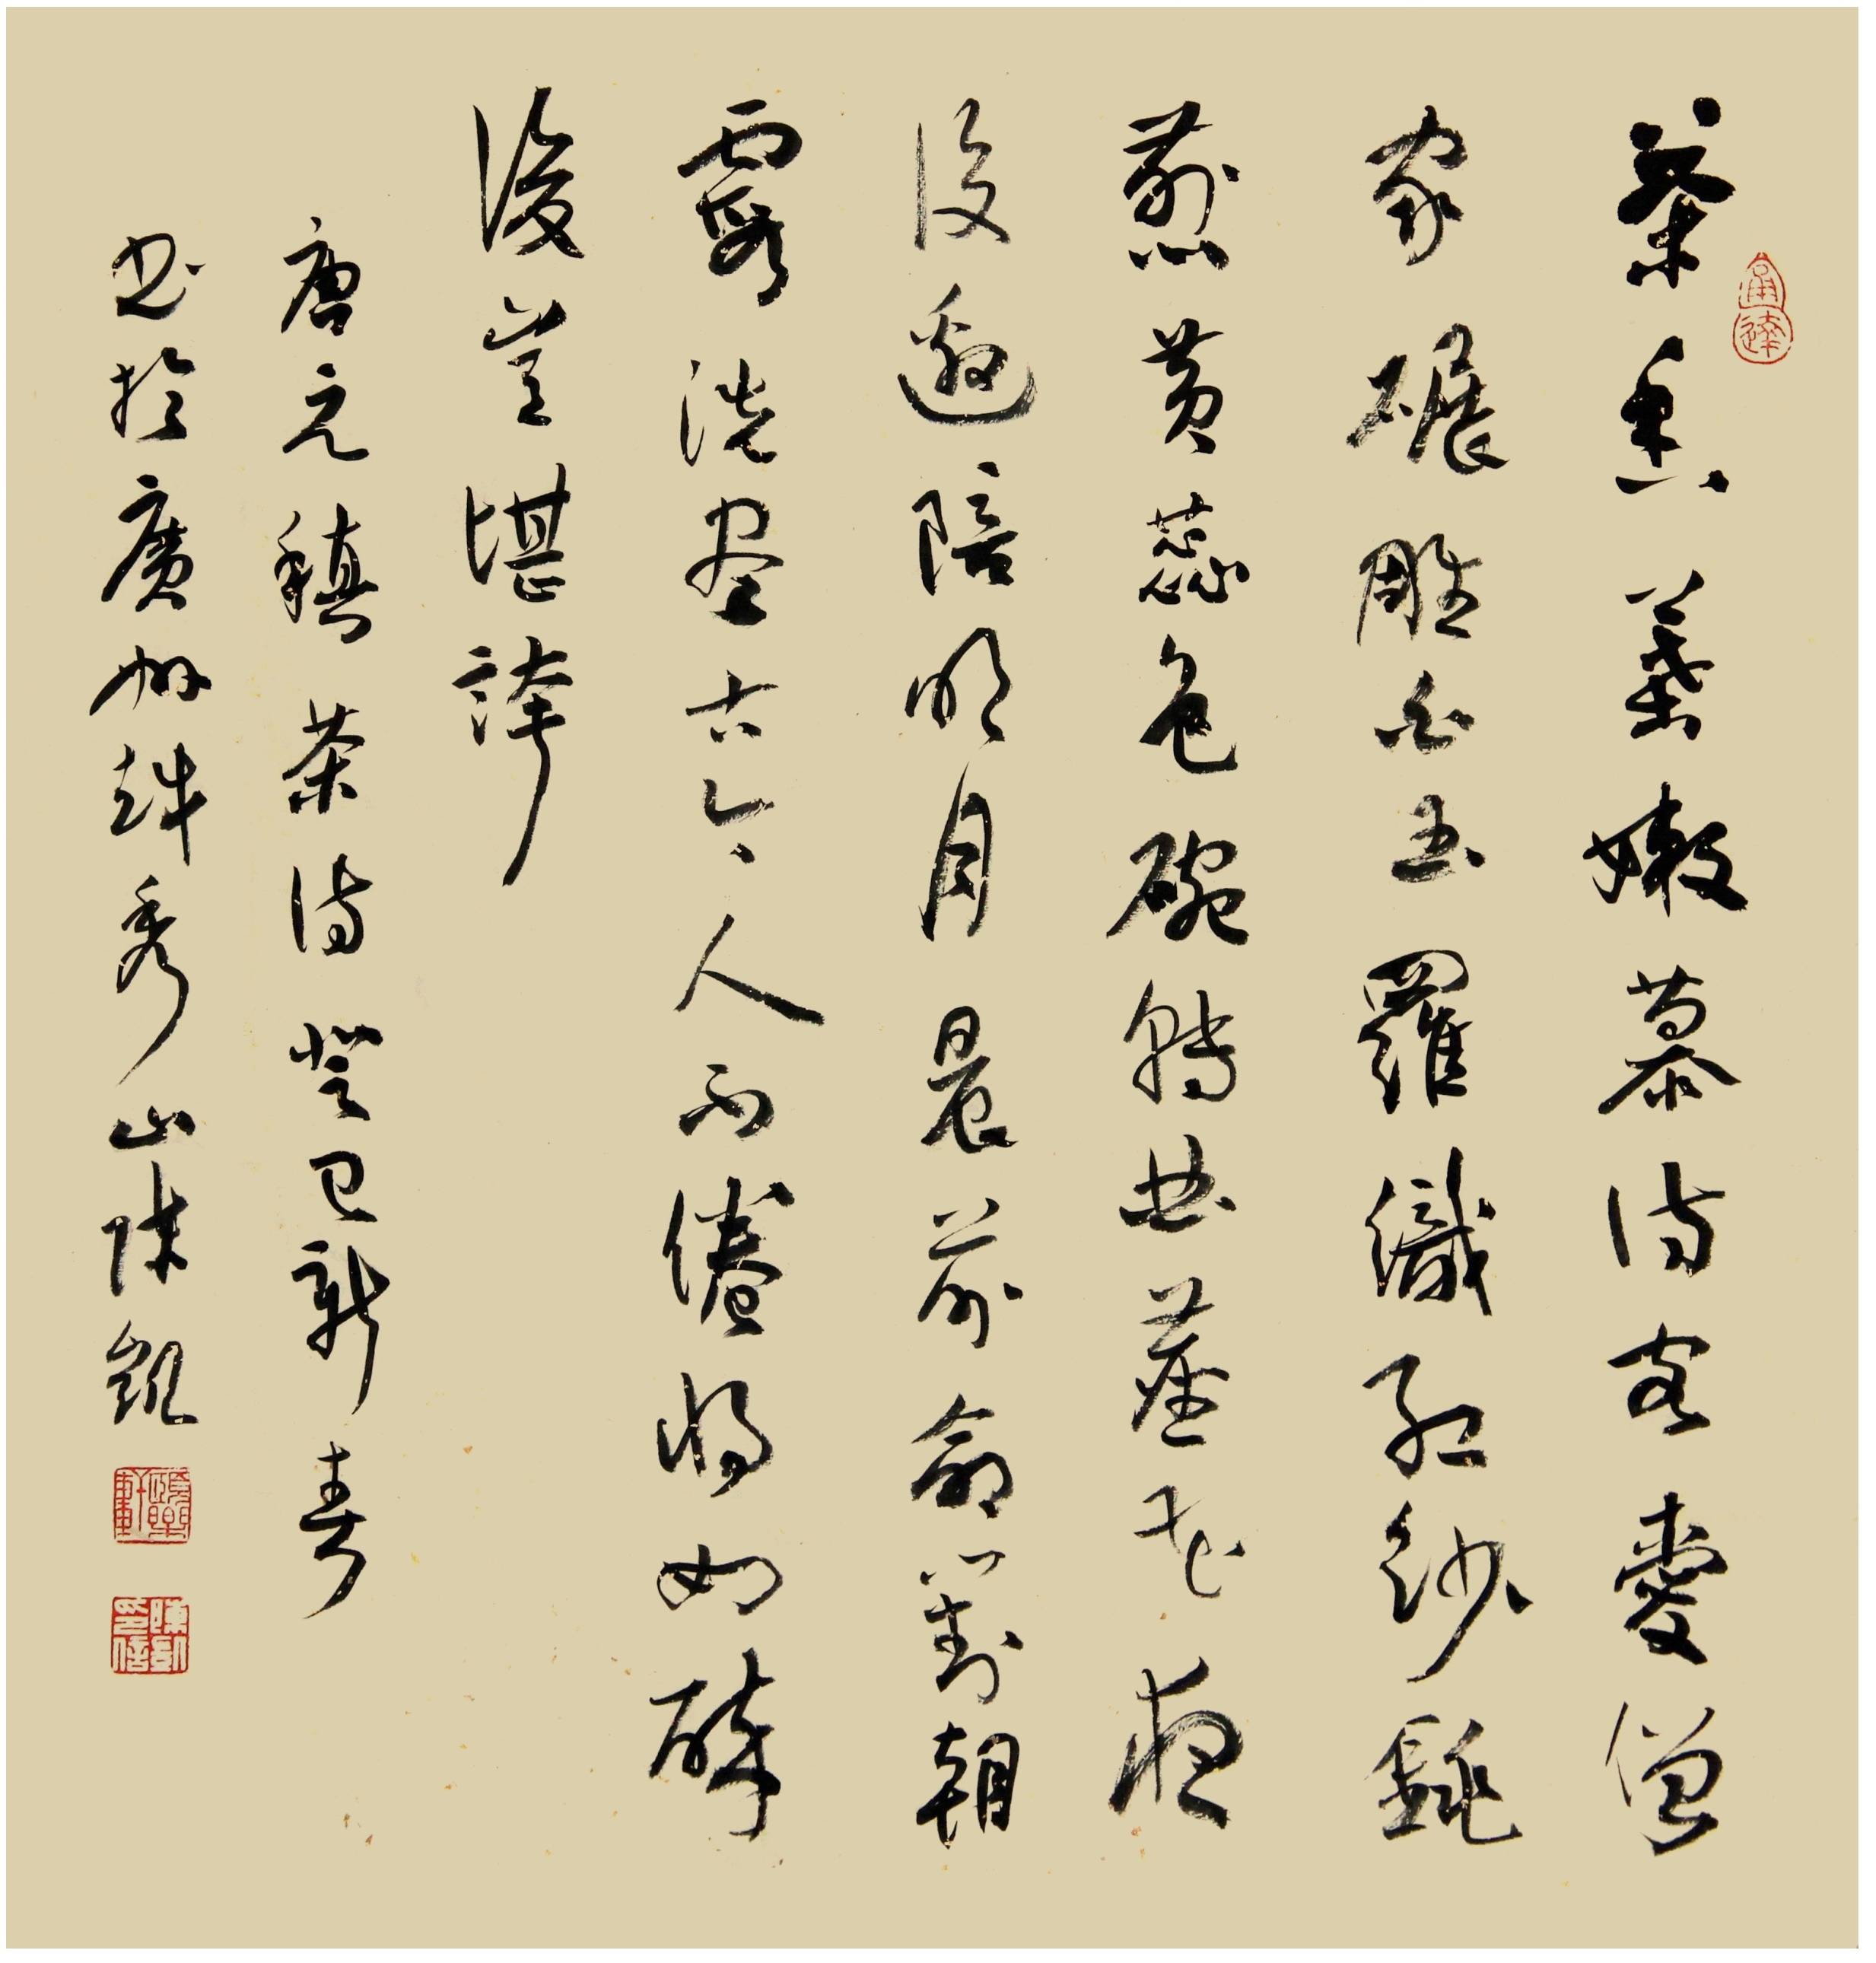 通達
茶香葉嫩慕詩客愛僧
家碾雕白玉羅織紅紗銚
煎黃蕊色碗轉曲塵花夜
後邀陪明月晨前命對朝
霞洗盡古今人不倦將如醉
後豈堪誇
唐元稹茶詩癸巳新春
書於廣州越秀山陳凱
陳凱印信